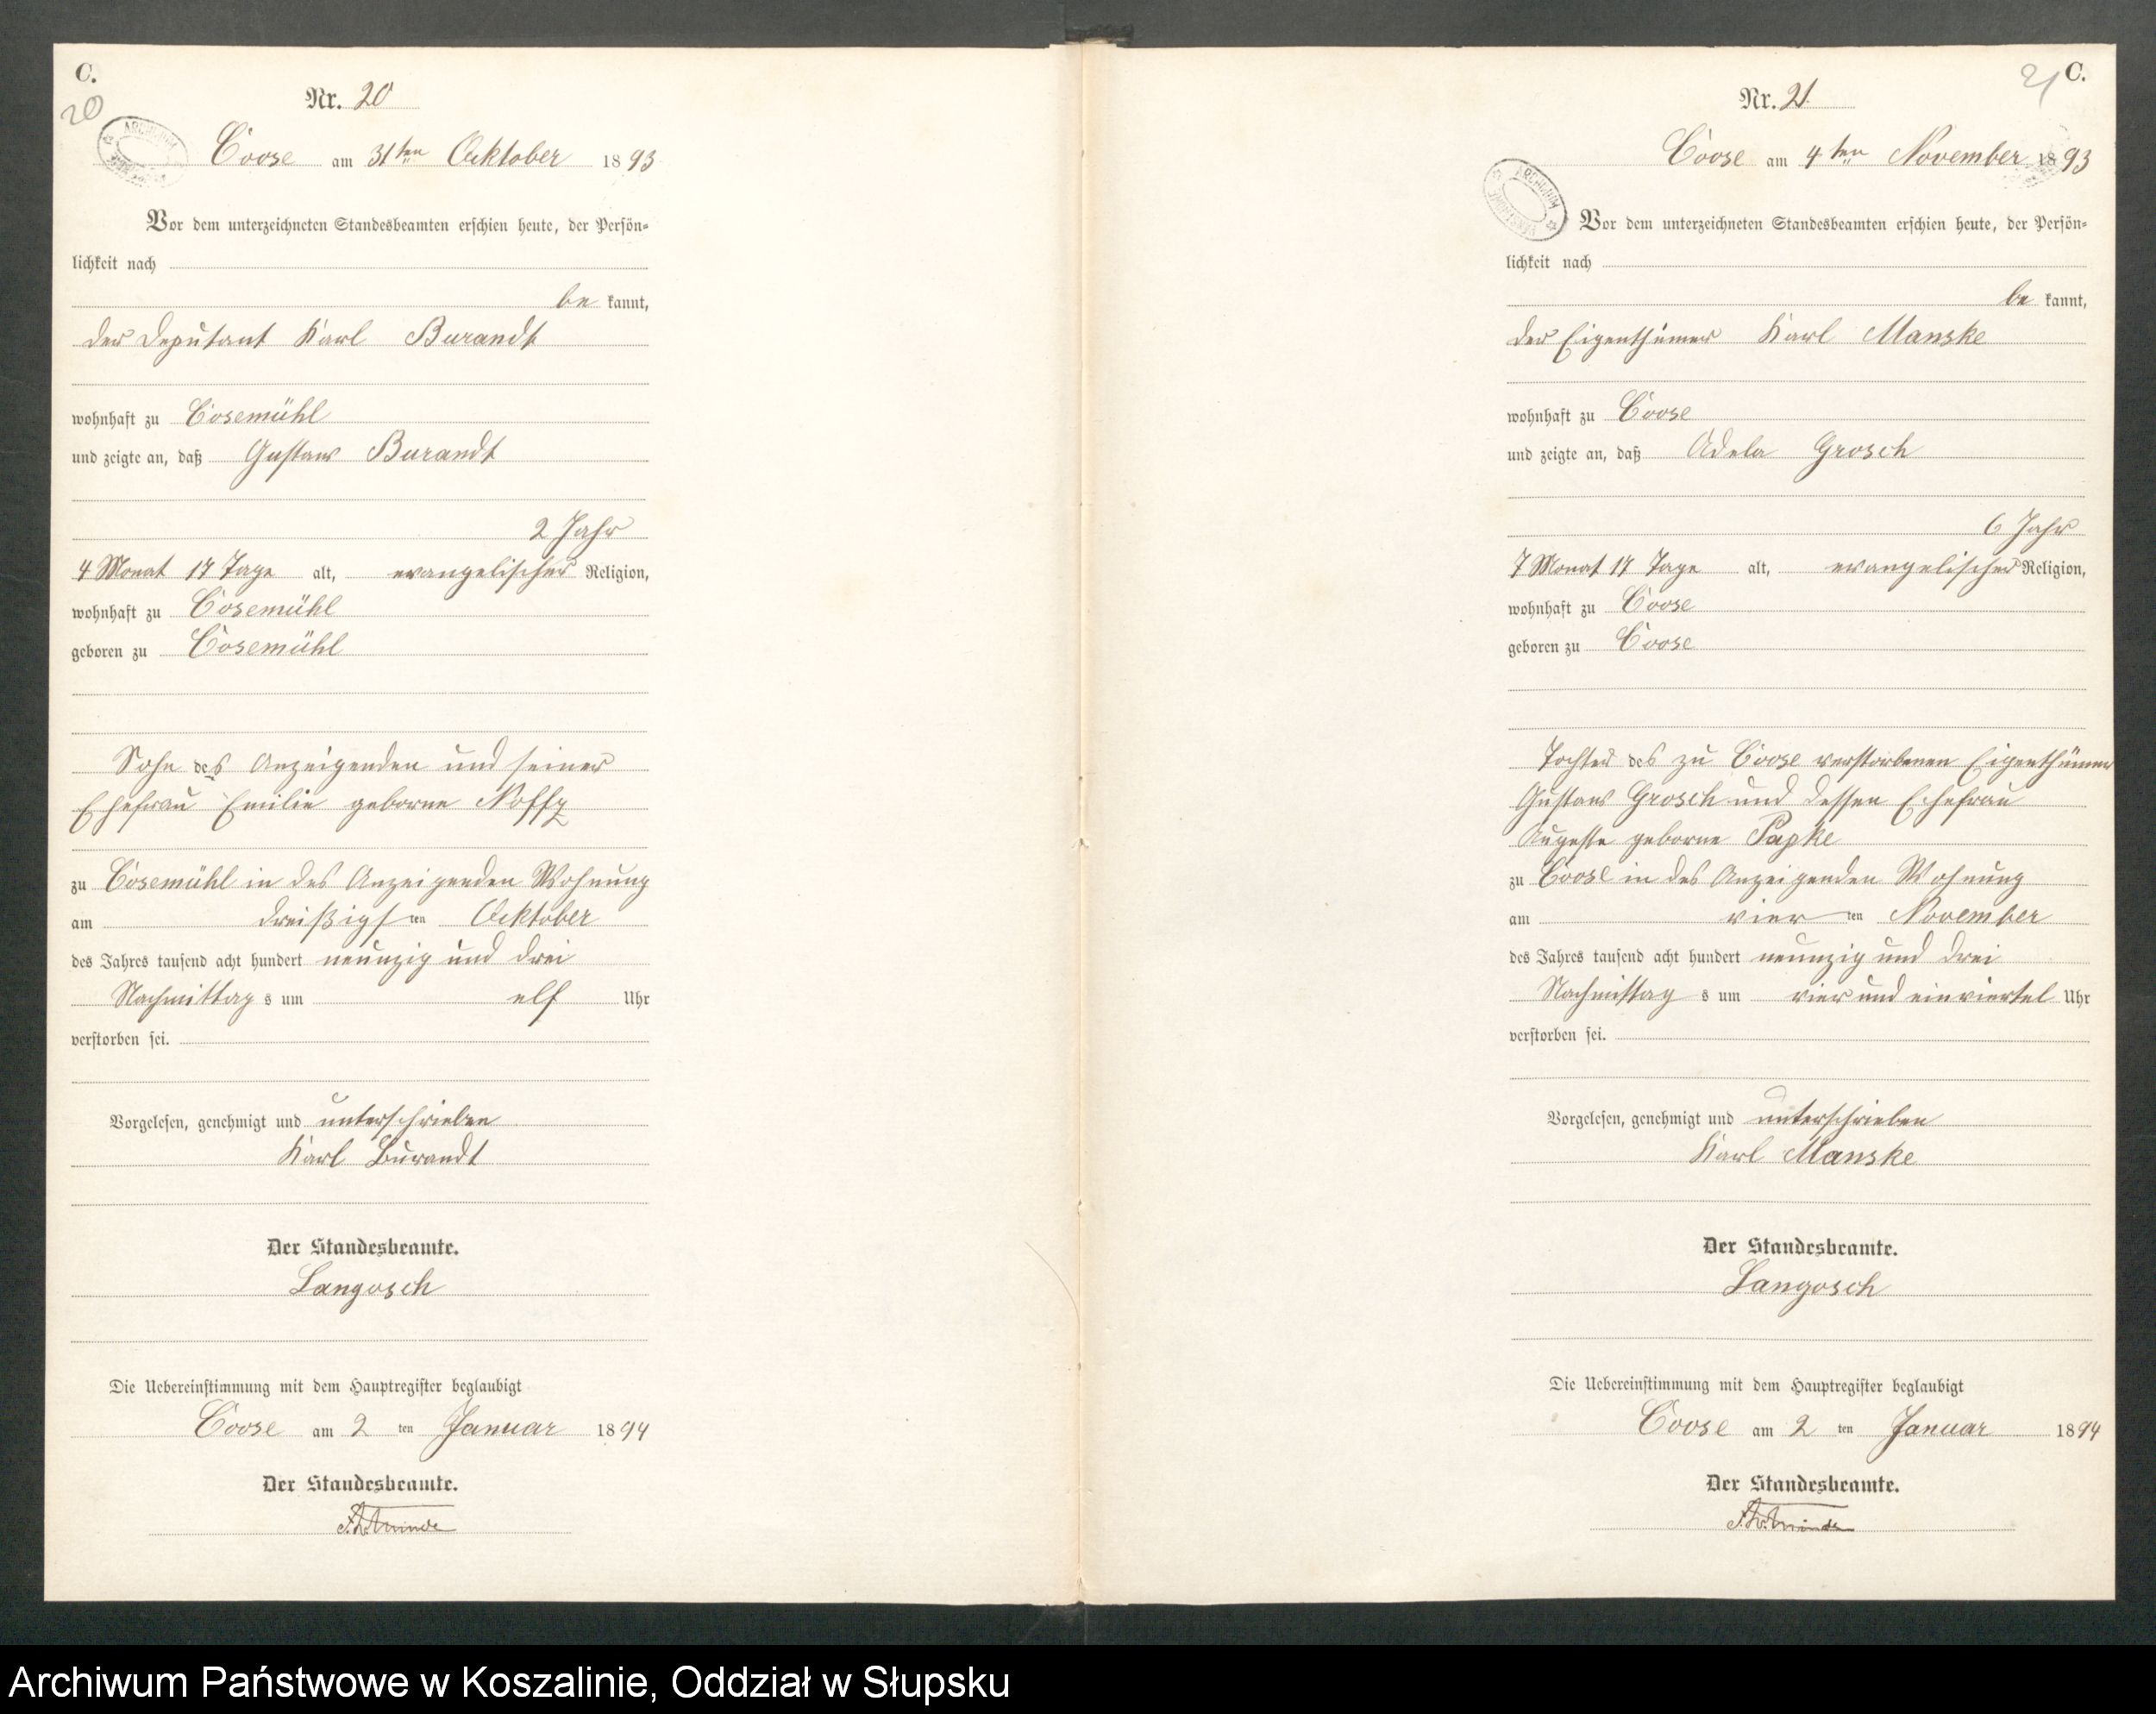 C.
20
Nr. 20
Coose am 31ten Ocktober 1893
Vor dem unterzeichneten Standesbeamten erschien heute, der Persön-
lichkeit nach
be kannt,
der Deputant Karl Burandt
wohnhaft zu Cosemühl
und zeigte an, daß Gustav Burandt
2 Jahr
4 Monat 17 Tage alt, evangelischer Religion,
wohnhaft zu Cosemühl
geboren zu Cosemühl
Sohn des Anzeigenden und seiner
Ehefrau Emilie geborne Noffz
zu Cosemühl in des Anzeigenden Wohnung
am dreißigsten Ocktober
des Jahres tausend acht hundert neunzig und drei
Nachmittags um elf Uhr
verstorben sei.
Vorgelesen, genehmigt und unterschrieben
Karl Burandt
Der Standesbeamte.
Langosch
Die Uebereinstimmung mit dem Hauptregister beglaubigt
Coose am 2 ten Januar 1894
Der Standesbeamte.
C.
21
Nr. 21.
Coose am 4ten November 1893
Vor dem unterzeichneten Standesbeamten erschien heute, der Persön-
lichkeit nach
be kannt,
der Eigenthümer Karl Manske
wohnhaft zu Coose
und zeigte an, daß Adela Grosch
6 Jahr
7 Monat 17 Tage alt, evangelischer Religion,
wohnhaft zu Coose
geboren zu Coose
Tochter des zu Coose verstorbenen Eigenthümer
Gustav Grosch und dessen Ehefrau
Auguste geborne Papke
zu Coose in des Anzeigenden Wohnung
am vier ten November
des Jahres tausend acht hundert neunzig und drei
Nachmittag s um vier und einviertel Uhr
verstorben sei.
Vorgelesen, genehmigt und unterschrieben
Karl Manske
Der Standesbeamte.
Langosch
Die Uebereinstimmung mit dem Hauptregister beglaubigt
Coose am 2 ten Januar 1894
Der Standesbeamte.
Archiwum Państwowe w Koszalinie, Oddział w Słupsku